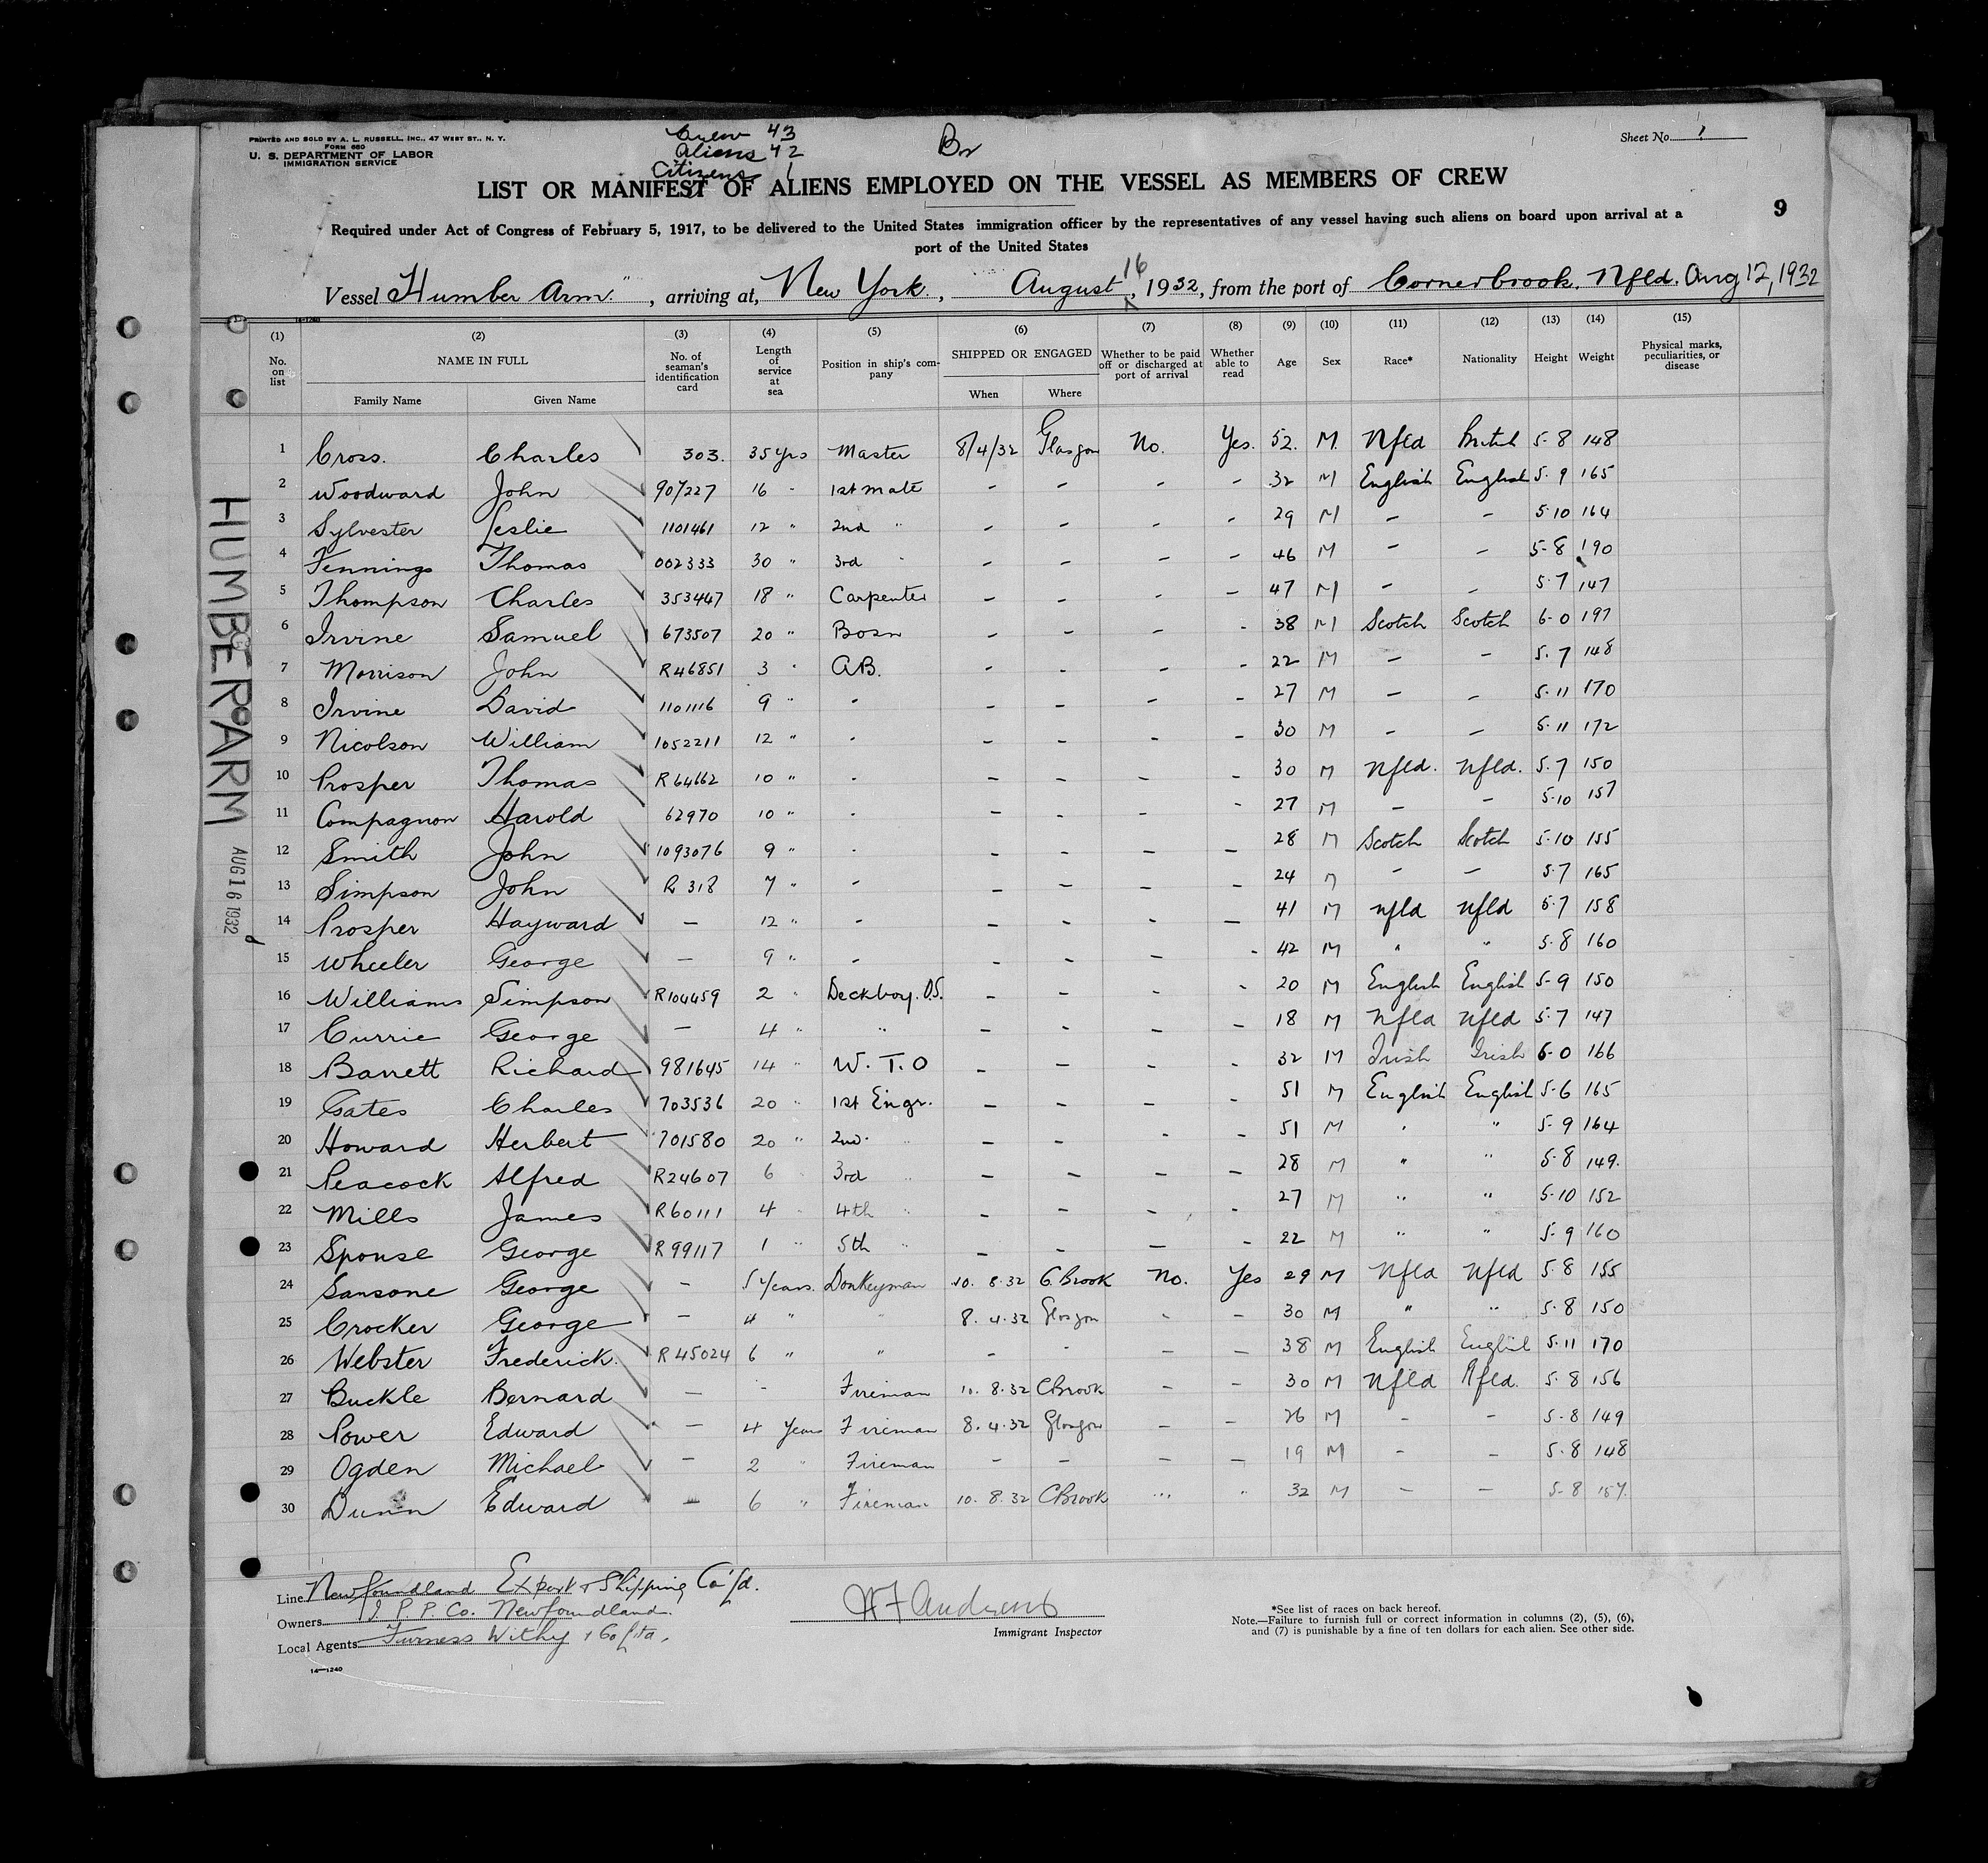 PRINTED AND SOLD BY A. L. RUSSELL, INC., 47 WEST ST., N. Y.
FORM 680
U. S. DEPARTMENT OF LABOR
IMMIGRATION SERVICE
Crew 43
Aliens 42
Citizens 1
Br
Sheet No. 1
LIST OR MANIFEST OF ALIENS EMPLOYED ON THE VESSEL AS MEMBERS OF CREW
9
Required under Act of Congress of February 5, 1917, to be delivered to the United States immigration officer by the representatives of any vessel having such aliens on board upon arrival at a
port of the United States
Vessel Humber Arm", arriving at, New York., August 16, 1932, from the port of Cornerbrook. Nfld. Aug 12, 1932
14-1240
(1) (2) (3) (4) (5) (6) (7) (8) (9) (10) (11) (12) (13) (14) (15)
No. on list NAME IN FULL No. of seaman's identification card Length of service at sea Position in ship's company SHIPPED OR ENGAGED Whether to be paid off or discharged at port of arrival Whether able to read Age Sex Race* Nationality Height Weight Physical marks, peculiarities, or disease
Family Name Given Name When Where
1 Cross. Charles 303. 35 yrs Master 8/4/32 Glasgow No. Yes. 52. M. Nfld British 5-8 148
2 Woodward John 907227 16 - 1st mate - - - - 32 M English English 5-9 165
3 Sylvester Leslie 1101461 12 " 2nd " - - - - 29 M - - 5-10 164
4 Jennings Thomas 002333 30 " 3rd - - - - - 46 M - - 5-8 190
5 Thompson Charles 353447 18 " Carpenter - - - - 47 M - - 5-7 147
6 Irvine Samuel 673507 20 " Bosn - - - - 38 M Scotch Scotch 6-0 197
7 Morrison John R46851 3 " A.B. - - - - 22 M - - 5-7 148
8 Irvine David 1101116 9 " - - - - - 27 M - - 5-11 170
9 Nicolson William 1052211 12 " - - - - - 30 M - - 5-11 172
10 Prosper Thomas R64662 10 " - - - - - 30 M Nfld. Nfld. 5-7 150
11 Compagnon Harold 62970 10 " - - - - - 27 M - - 5-10 157
12 Smith John 1093076 9 " - - - - - 28 M Scotch Scotch 5-10 155
13 Simpson John R 318 7 " - - - - - 24 M - - 5-7 165
14 Prosper Hayward - 12 " - - - - - 41 M nfld nfld 5-7 158
15 Wheeler George - 9 " - - - - - 42 M " " 5-8 160
16 Williams Simpson R104459 2 " Deckboy. O.S. - - - - 20 M English English 5-9 150
17 Currie George - 4 " " - - - - 18 M Nfld Nfld 5-7 147
18 Barrett Richard 981645 14 " W. T. O - - - - 32 M Irish Irish 6-0 166
19 Gates Charles 703536 20 " 1st Engr. - - - - 51 M English English 5-6 165
20 Howard Herbert 701580 20 " 2nd. " - - - - 51 M " " 5-9 164
21 Peacock Alfred R24607 6 " 3rd " - - - - 28 M " " 5-8 149.
22 Mills James R60111 4 " 4th " - - - - 27 M " " 5-10 152
23 Spouse George R99117 1 " 5th " - - - - 22 M " " 5-9 160
24 Sansone George - 5 Years. Donkeyman 10. 8.32 C. Brook No. Yes 29 M Nfld Nfld 5-8 155
25 Crocker George - 4 " " 8. 4.32 Glasgow - - 30 M " " 5-8 150
26 Webster Frederick. R45024 6 " " - - - - 38 M English English 5-11 170
27 Buckle Bernard - - Fireman 10. 8.32 CBrook - - 30 M Nfld Nfld. 5-8 156
28 Power Edward - 4 Years Fireman 8. 4.32 Glasgow - - 26 M - - 5-8 149
29 Ogden Michael - 2 " Fireman - - - - 19 M - - 5-8 148
30 Dunn Edward - 6 " Fireman 10. 8.32 CBrook " " 32 M - - 5-8 157.
HUMBER ARM
AUG 16 1932
Line Newfoundland Export & Shipping Co. Ltd.
Owners I. P. P. Co. Newfoundland.
Local Agents Furness Withy & Co Ltd.
Immigrant Inspector
*See list of races on back hereof.
Note.—Failure to furnish full or correct information in columns (2), (5), (6),
and (7) is punishable by a fine of ten dollars for each alien. See other side.
14-1240